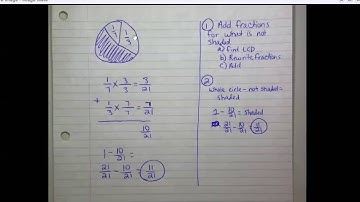 1/7
1/3
1/7 × 3/3 = 3/21
+ 1/3 × 7/7 = 7/21
10/21
1 - 10/21 =
21/21 - 10/21 = 11/21
1 Add fractions
for what is not
shaded
a) Find LCD
b) Rewrite fractions
c) Add
2
whole circle - not shaded =
shaded
1 - 10/21 = shaded
21/21 - 10/21 = 11/21